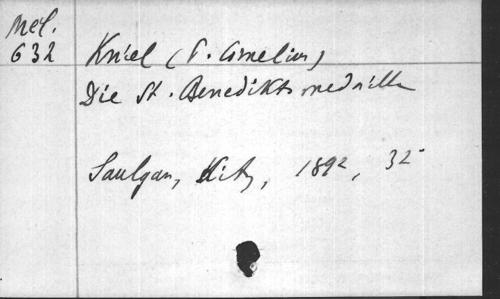 Mel.
632
Kniel (P. Cornelius)
Die St. Benediktsmedaille
Saulgau, Kitz, 1892, 32°